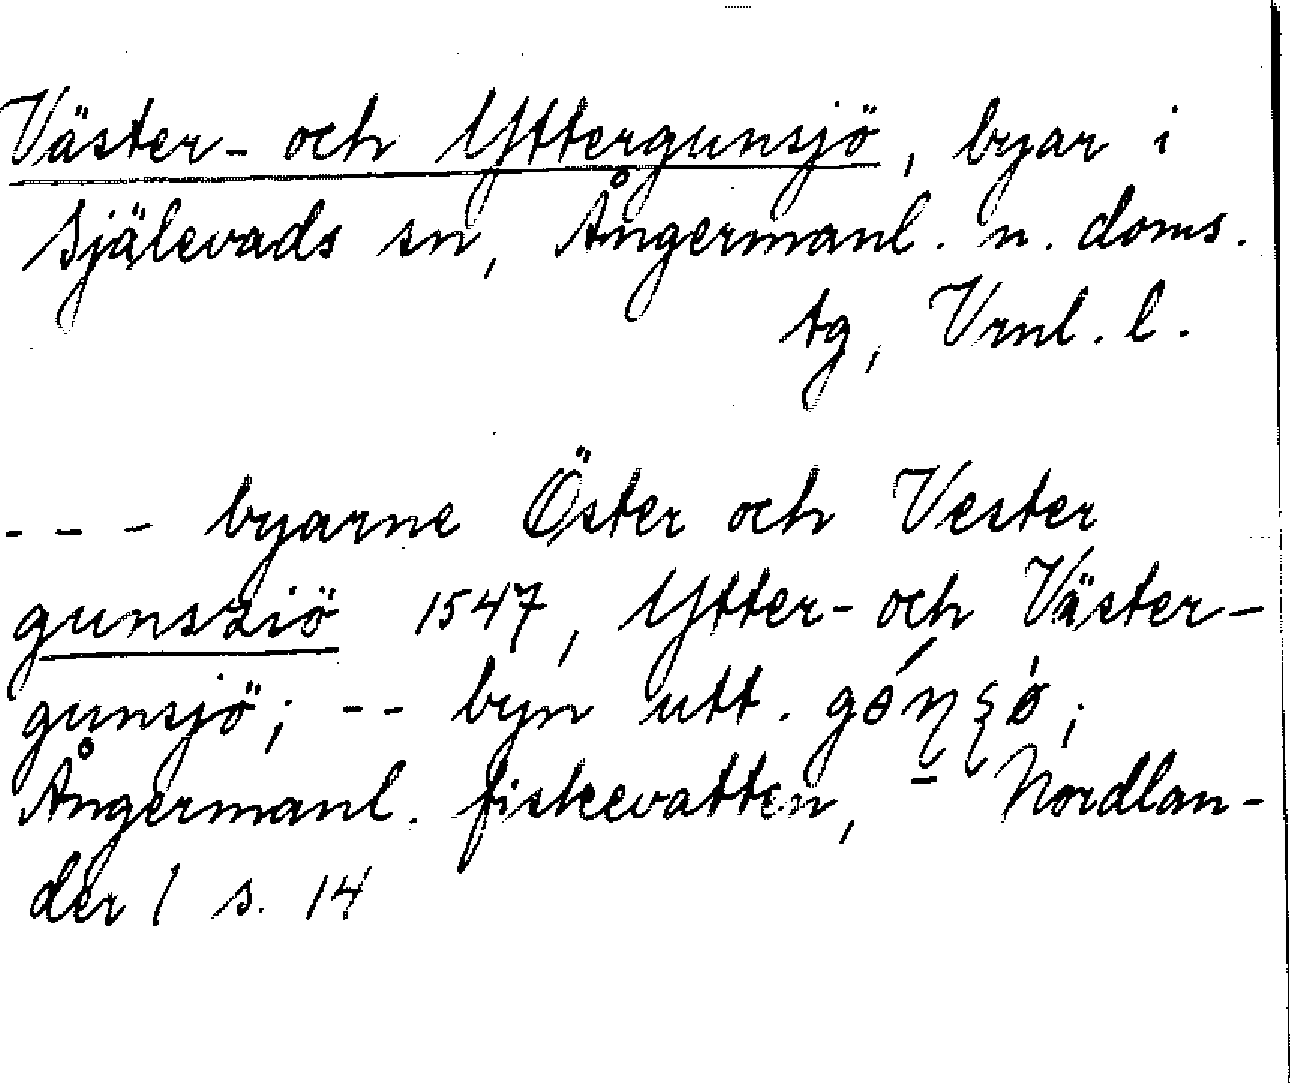 Väster- och Yttergunsjö, byar i
Själevads sn, Ångermanl. n. doms.
tg, Vrnl. l.
--- byarne Öster och Vester
gunsziö 1547, Ytter- och Väster-
gunsjö; -- byn utt.
Ångermanl. fiskevatten, Nordlan-
der 1 s. 14